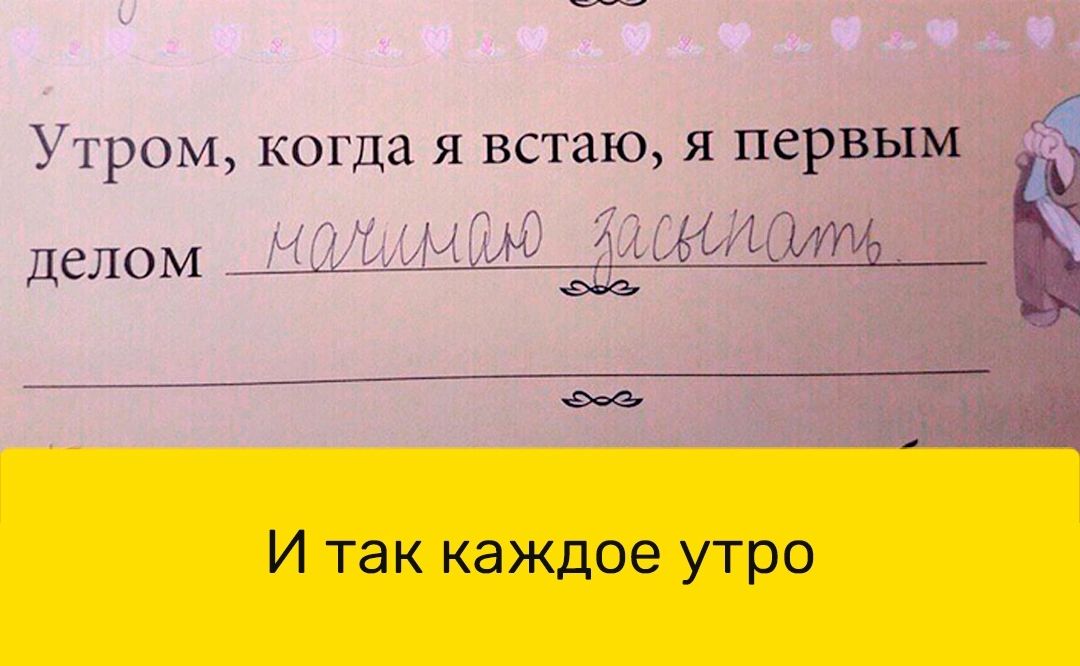 Утром, когда я встаю, я первым
делом начинаю засыпать.
И так каждое утро